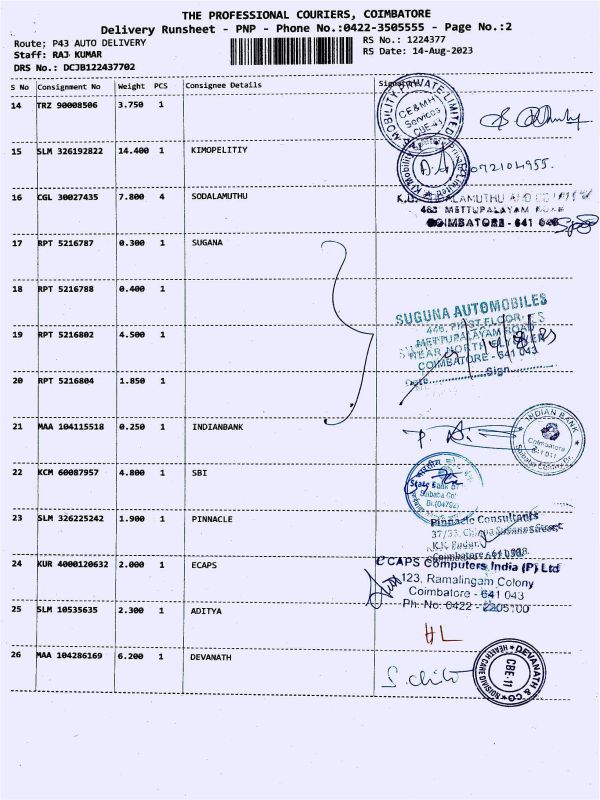 THE PROFESSIONAL COURIERS, COIMBATORE
Delivery Runsheet - PNP - Phone No.:0422-3505555 - Page No.:2
Route; P43 AUTO DELIVERY
RS No.: 1224377
Staff: RAJ KUMAR
RS Date: 14-Aug-2023
DRS No.: DCJB122437702
S No Consignment No Weight PCS Consignee Details Signature
14 TRZ 90008506 3.750 1
MOBILITY PRIVATE LIMITED
CE&MH
Services
CBE-41
15 SLM 326192822 14.400 1 KIMOPELITIY
072104955.
16 CGL 30027435 7.800 4 SODALAMUTHU
METTUPALAYAM ROAD
COIMBATORE - 641 043
17 RPT 5216787 0.300 1 SUGANA
18 RPT 5216788 0.400 1
SUGUNA AUTOMOBILES
446, FIRST FLOOR,
METTUPALAYAM ROAD
NEAR NORTH
COIMBATORE - 641 043
Date Sign
19 RPT 5216802 4.500 1
20 RPT 5216804 1.850 1
21 MAA 104115518 0.250 1 INDIANBANK
INDIAN BANK
Coimbatore
641 011
22 KCM 60087957 4.800 1 SBI
State Bank of
Saibaba Col
Br.(04792)
23 SLM 326225242 1.900 1 PINNACLE
Pinnacle Consultants
37/33,
K.K. Pudur,
Coimbatore - 641 038.
24 KUR 4000120632 2.000 1 ECAPS
CAPS Computers India (P) Ltd
123, Ramalingam Colony
Coimbatore - 641 043
Ph. No: 0422 - 2205100
25 SLM 10535635 2.300 1 ADITYA
HL
26 MAA 104286169 6.200 1 DEVANATH
DEVANATH & CO
HEALTH CARE DIVISION
CBE-11